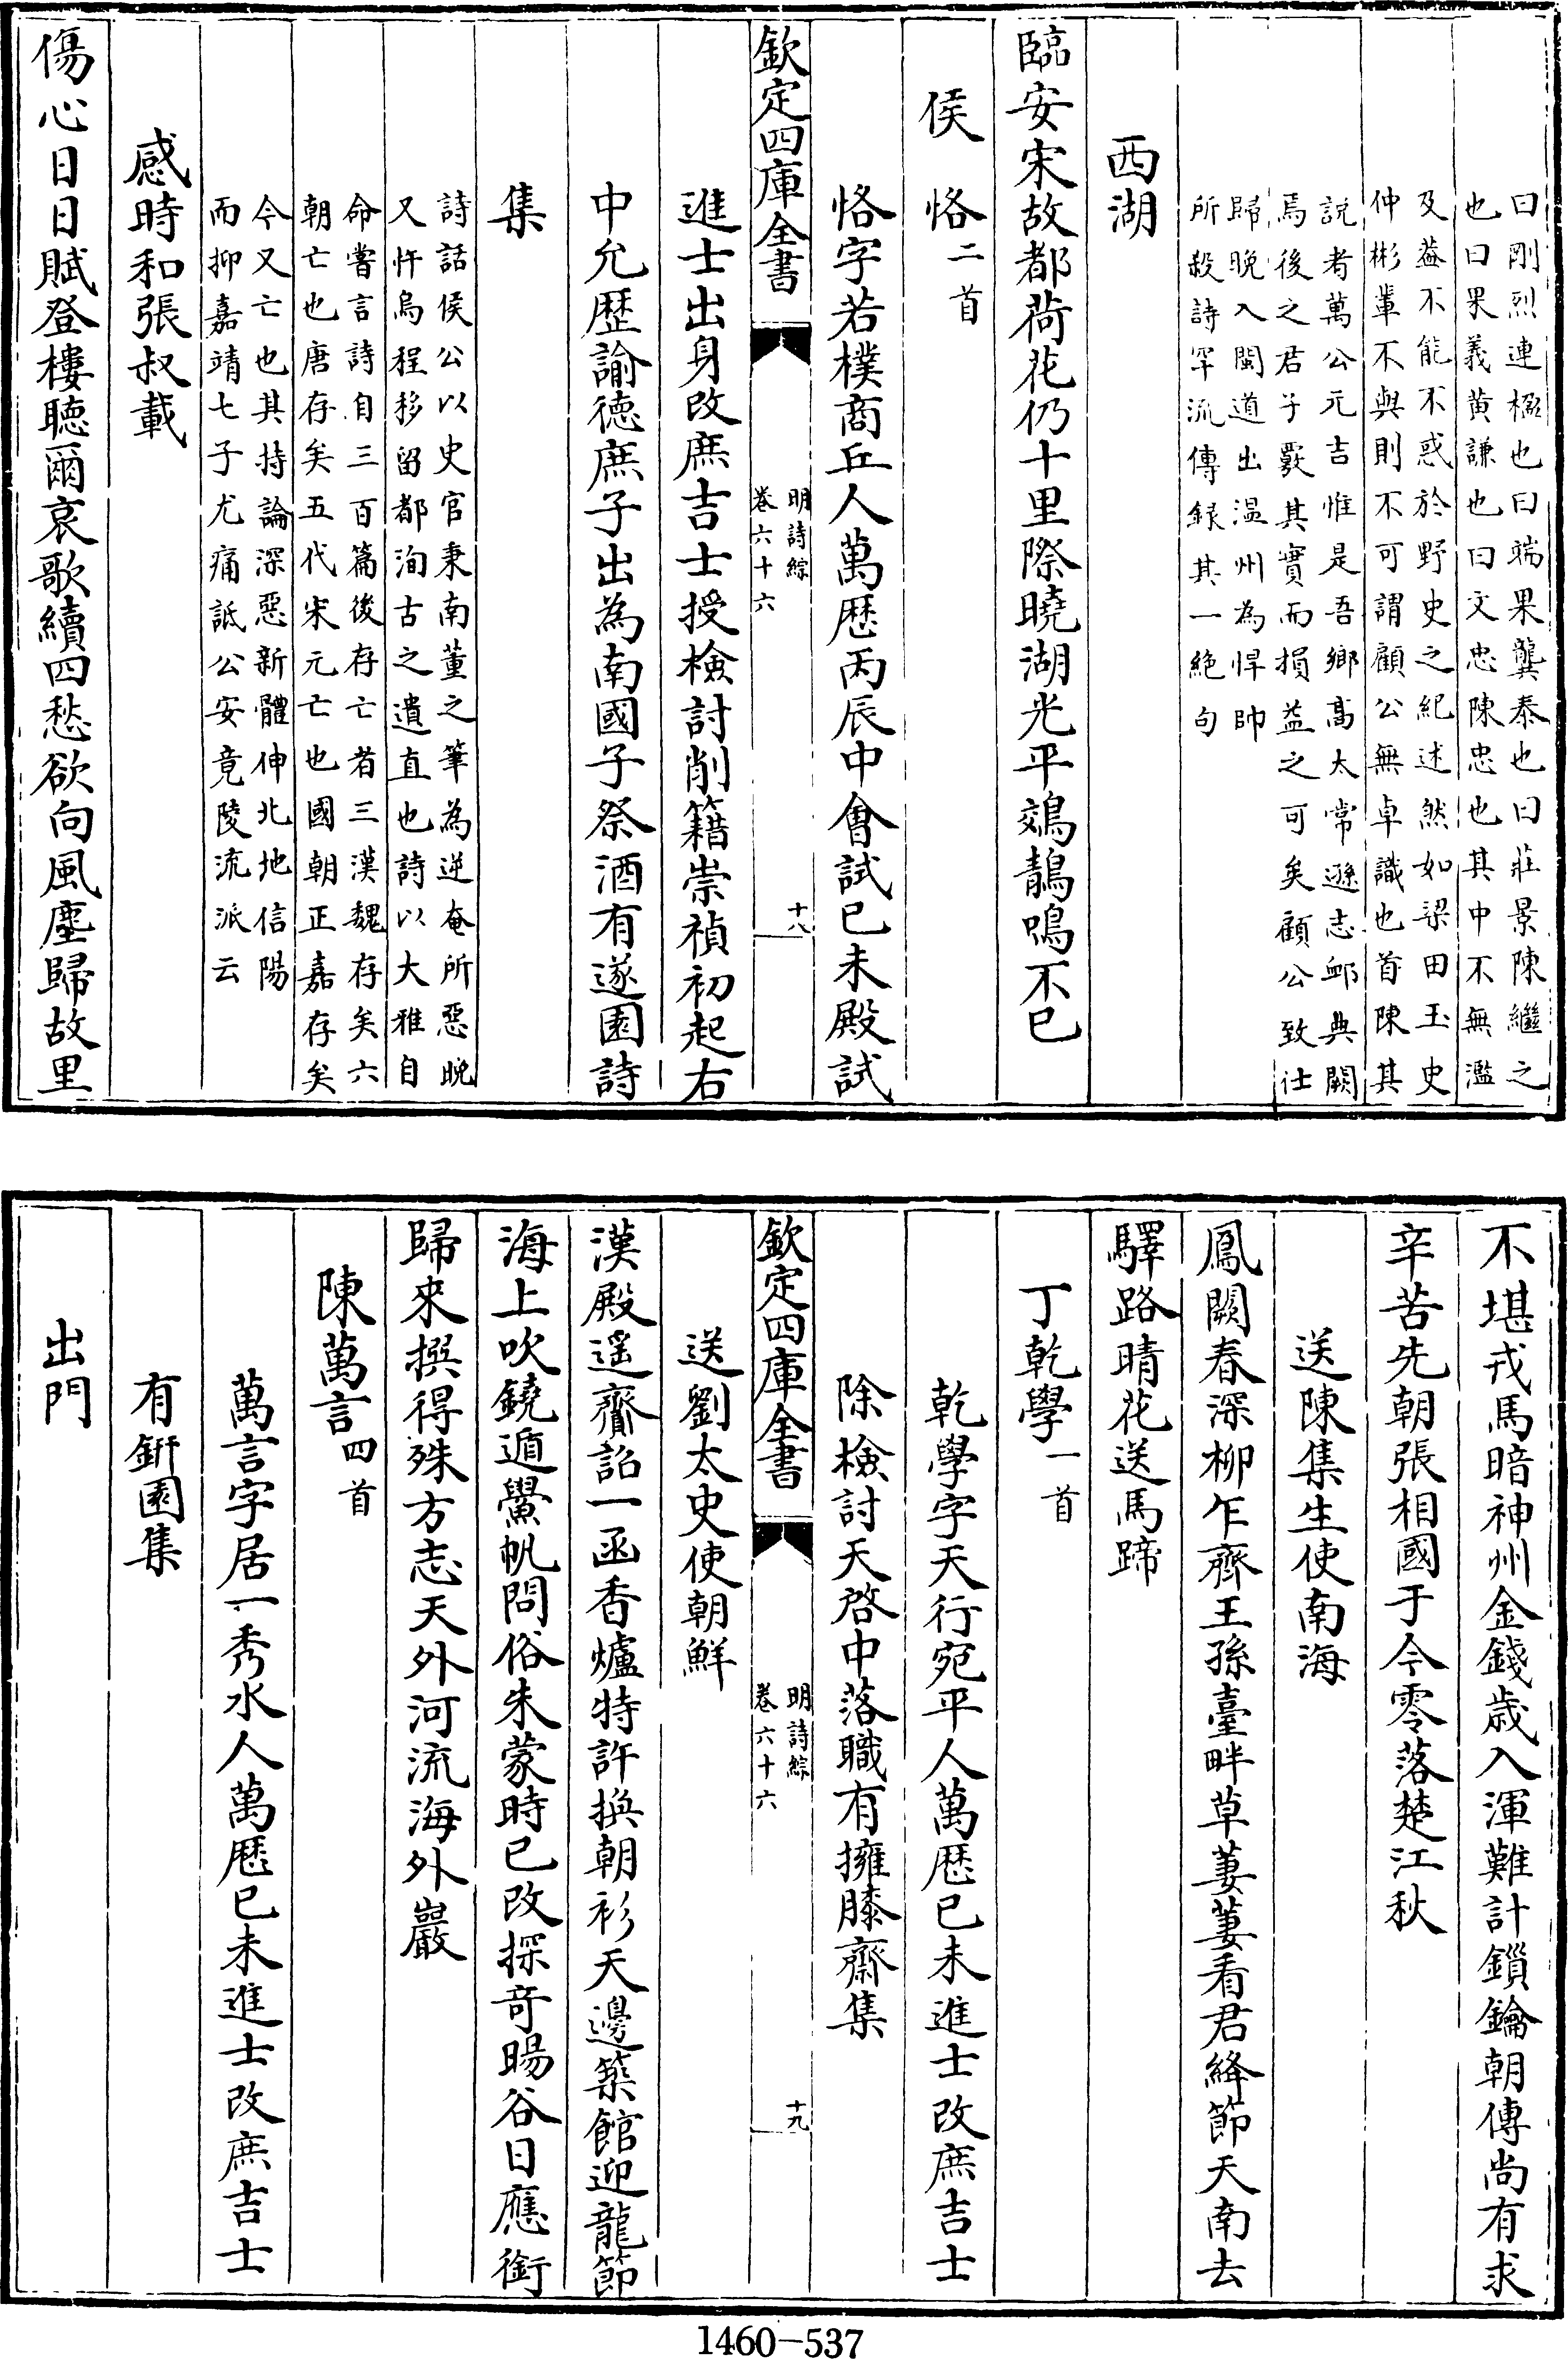 曰剛烈連楹也曰端果龔泰也曰莊景陳繼之
也曰果義黄謙也曰文忠陳忠也其中不無濫
及葢不能不惑於野史之紀述然如梁田玉史
仲彬輩不與則不可謂顧公無卓識也首陳其
説者萬公元吉惟是吾鄉髙太常遜志卹典闕
焉後之君子覈其實而損益之可矣顧公致仕
歸晚入閩道出温州為悍帥
所殺詩罕流傳録其一絶句
西湖
臨安宋故都荷花仍十里際曉湖光平鵁鶄鳴不已
侯恪二首
恪字若樸商丘人萬厯丙辰中會試已未殿試
欽定四庫全書
明詩綜
卷六十六
十八
進士出身改庶吉士授檢討削籍崇禎初起右
中允歴諭徳庶子出為南國子祭酒有遂園詩
集
詩話侯公以史官秉南董之筆為逆奄所惡晚
又忤烏程移留都洵古之遺直也詩以大雅自
命嘗言詩自三百篇後存亡者三漢魏存矣六
朝亡也唐存矣五代宋元亡也國朝正嘉存矣
今又亡也其持論深惡新體伸北地信陽
而抑嘉靖七子尤痛詆公安竟陵流派云
感時和張叔載
傷心日日賦登樓聴爾哀歌續四愁欲向風塵歸故里
不堪戎馬暗神州金錢歲入渾難計鎖鑰朝傳尚有求
辛苦先朝張相國于今零落楚江秋
送陳集生使南海
鳳闕春深柳乍齊王孫臺畔草萋萋看君絳節天南去
驛路晴花送馬蹄
丁乾學一首
乾學字天行宛平人萬厯已未進士改庶吉士
除檢討天啓中落職有擁膝齋集
欽定四庫全書
明詩綜
卷六十六
十九
送劉太史使朝鮮
漢殿遥齎詔一函香爐特許換朝衫天邊築館迎龍節
海上吹鐃遁鱟帆問俗朱蒙時已改探奇暘谷日應銜
歸來撰得殊方志天外河流海外巖
陳萬言四首
萬言字居一秀水人萬厯已未進士改庶吉士
有銒園集
出門
1460-537